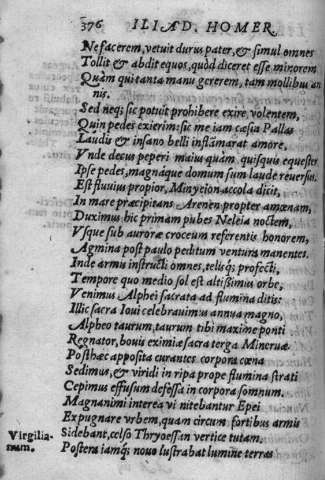 376 ILIAD. HOMER
Ne facerem, vetuit durus pater, & simul omnes
Tollit & abdit equos, quòd diceret esse minorem
Quàm qui tanta manu gererem, tam mollibus an
nis.
Sed neq; sic potuit prohibere exire volentem,
Quin pedes exierim: sic me iam cæsia Pallas
Laudis & insano belli inflãmarat amore,
Vnde decus peperi maius quàm quisquis equester
Ipse pedes, magnaque domum sum laude reuersus.
Est fluuius propior, Minyeion accola dicit,
In mare præcipitans Arenen propter amœnam,
Duximus hic primam pubes Neleia noctem,
Vsque sub auroræ croceum referentis honorem,
Agmina post paulo peditum ventura manentes.
Inde armis instructi omnes, telisq; profecti,
Tempore quo medio sol est altissimus orbe,
Venimus Alphei sacrata ad flumina ditis:
Illic sacra Ioui celebrauimus annua magno,
Alpheo taurum, taurum tibi maxime ponti
Regnator, bouis eximiæ sacra terga Mineruæ
Posthæc apposita curantes corpora cœna
Sedimus, & viridi in ripa prope flumina strati
Cepimus effusum defessa in corpora somnum.
Magnanimi interea vi nitebantur Epei
Expugnare vrbem, quam circum fortibus armis
Virgilia- Sidebant, celso Thryoessan vertice tutam.
num. Postera iamq; nouo lustrabat lumine terras